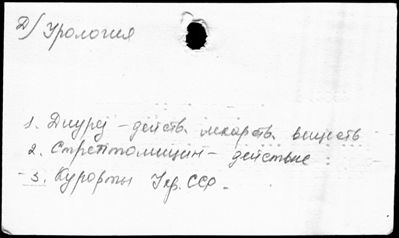 Д/Урология
1. Диурез – действ. лекарств. веществ
2. Стрептомицин – действие
3. Курорты Укр. ССР.